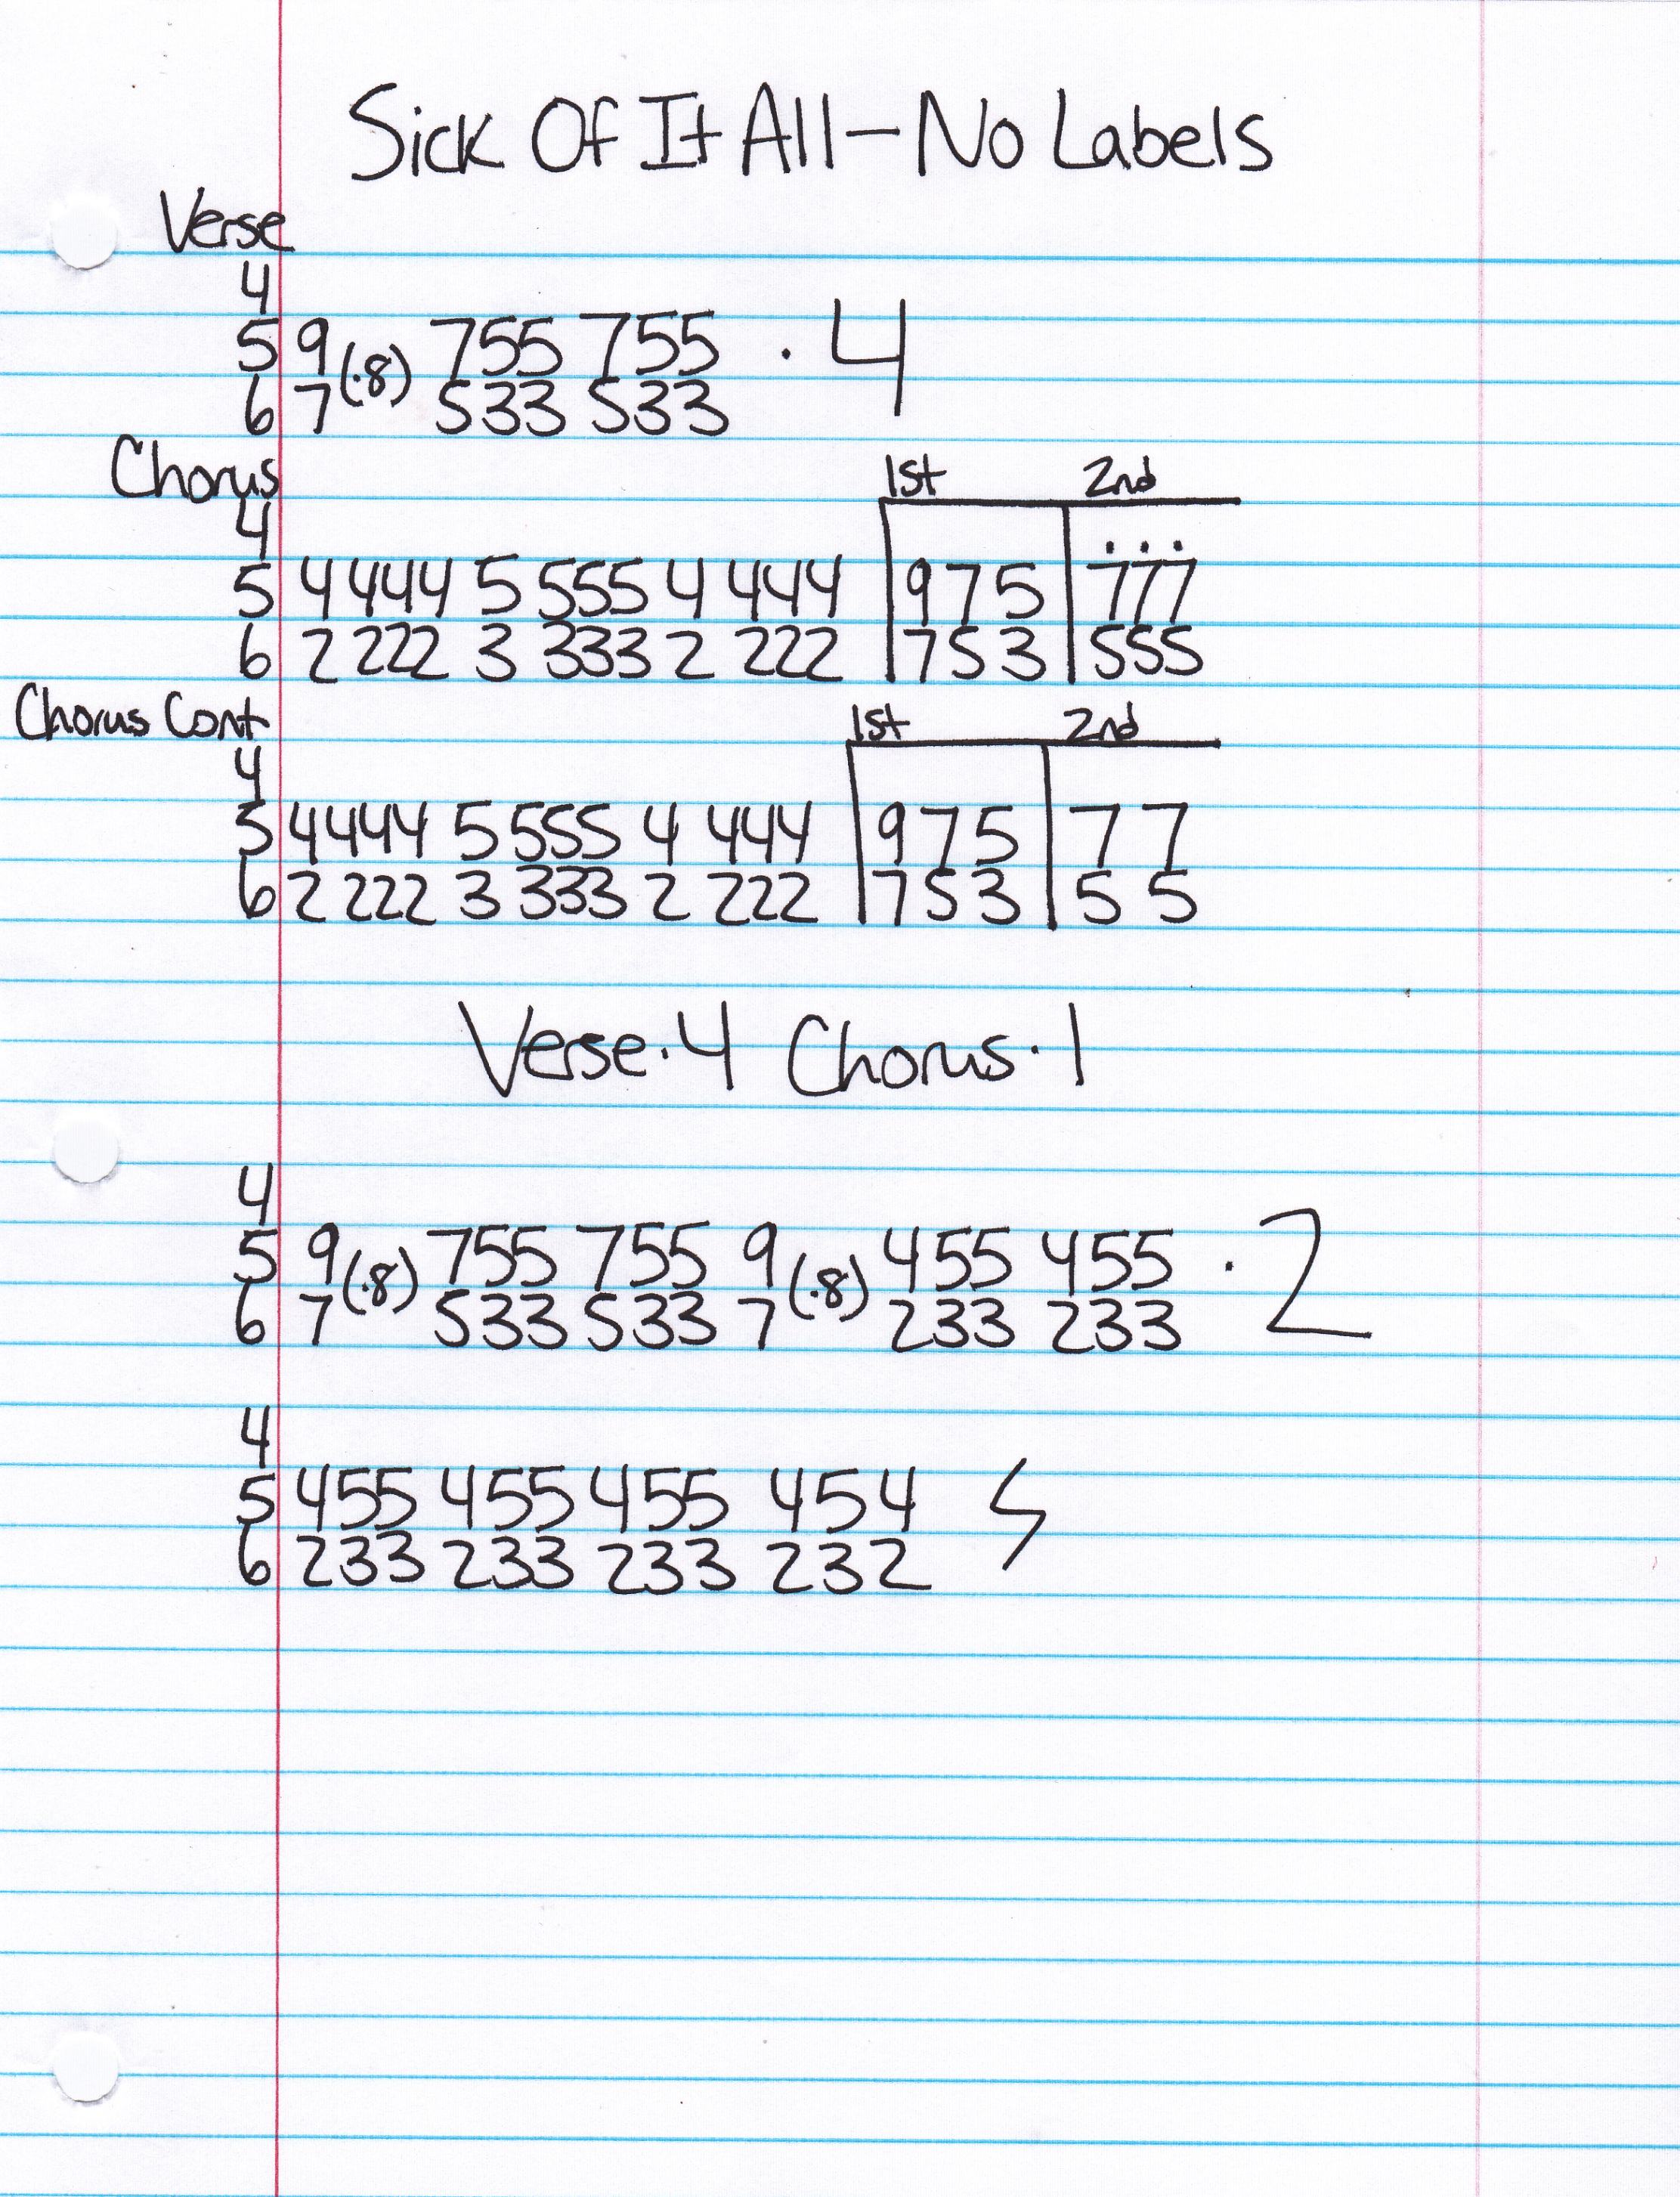 Sick Of It All - No Labels
Verse
4
5 9 (·8) 755 755 · 4
6 7 533 533
Chorus 1st 2nd
4 . . .
5 4 444 5 555 4 444 | 9 7 5 | 777
6 2 222 3 333 2 222 | 7 5 3 | 555
Chorus Cont 1st 2nd
4
5 4444 5 555 4 444 | 9 7 5 | 7 7
6 2 222 3 333 2 222 | 7 5 3 | 5 5
Verse · 4 Chorus · 1
4
5 9 (·8) 755 755 9 (·8) 455 455 · 2
6 7 533 533 7 233 233
4
5 455 455 455 454
6 233 233 233 232